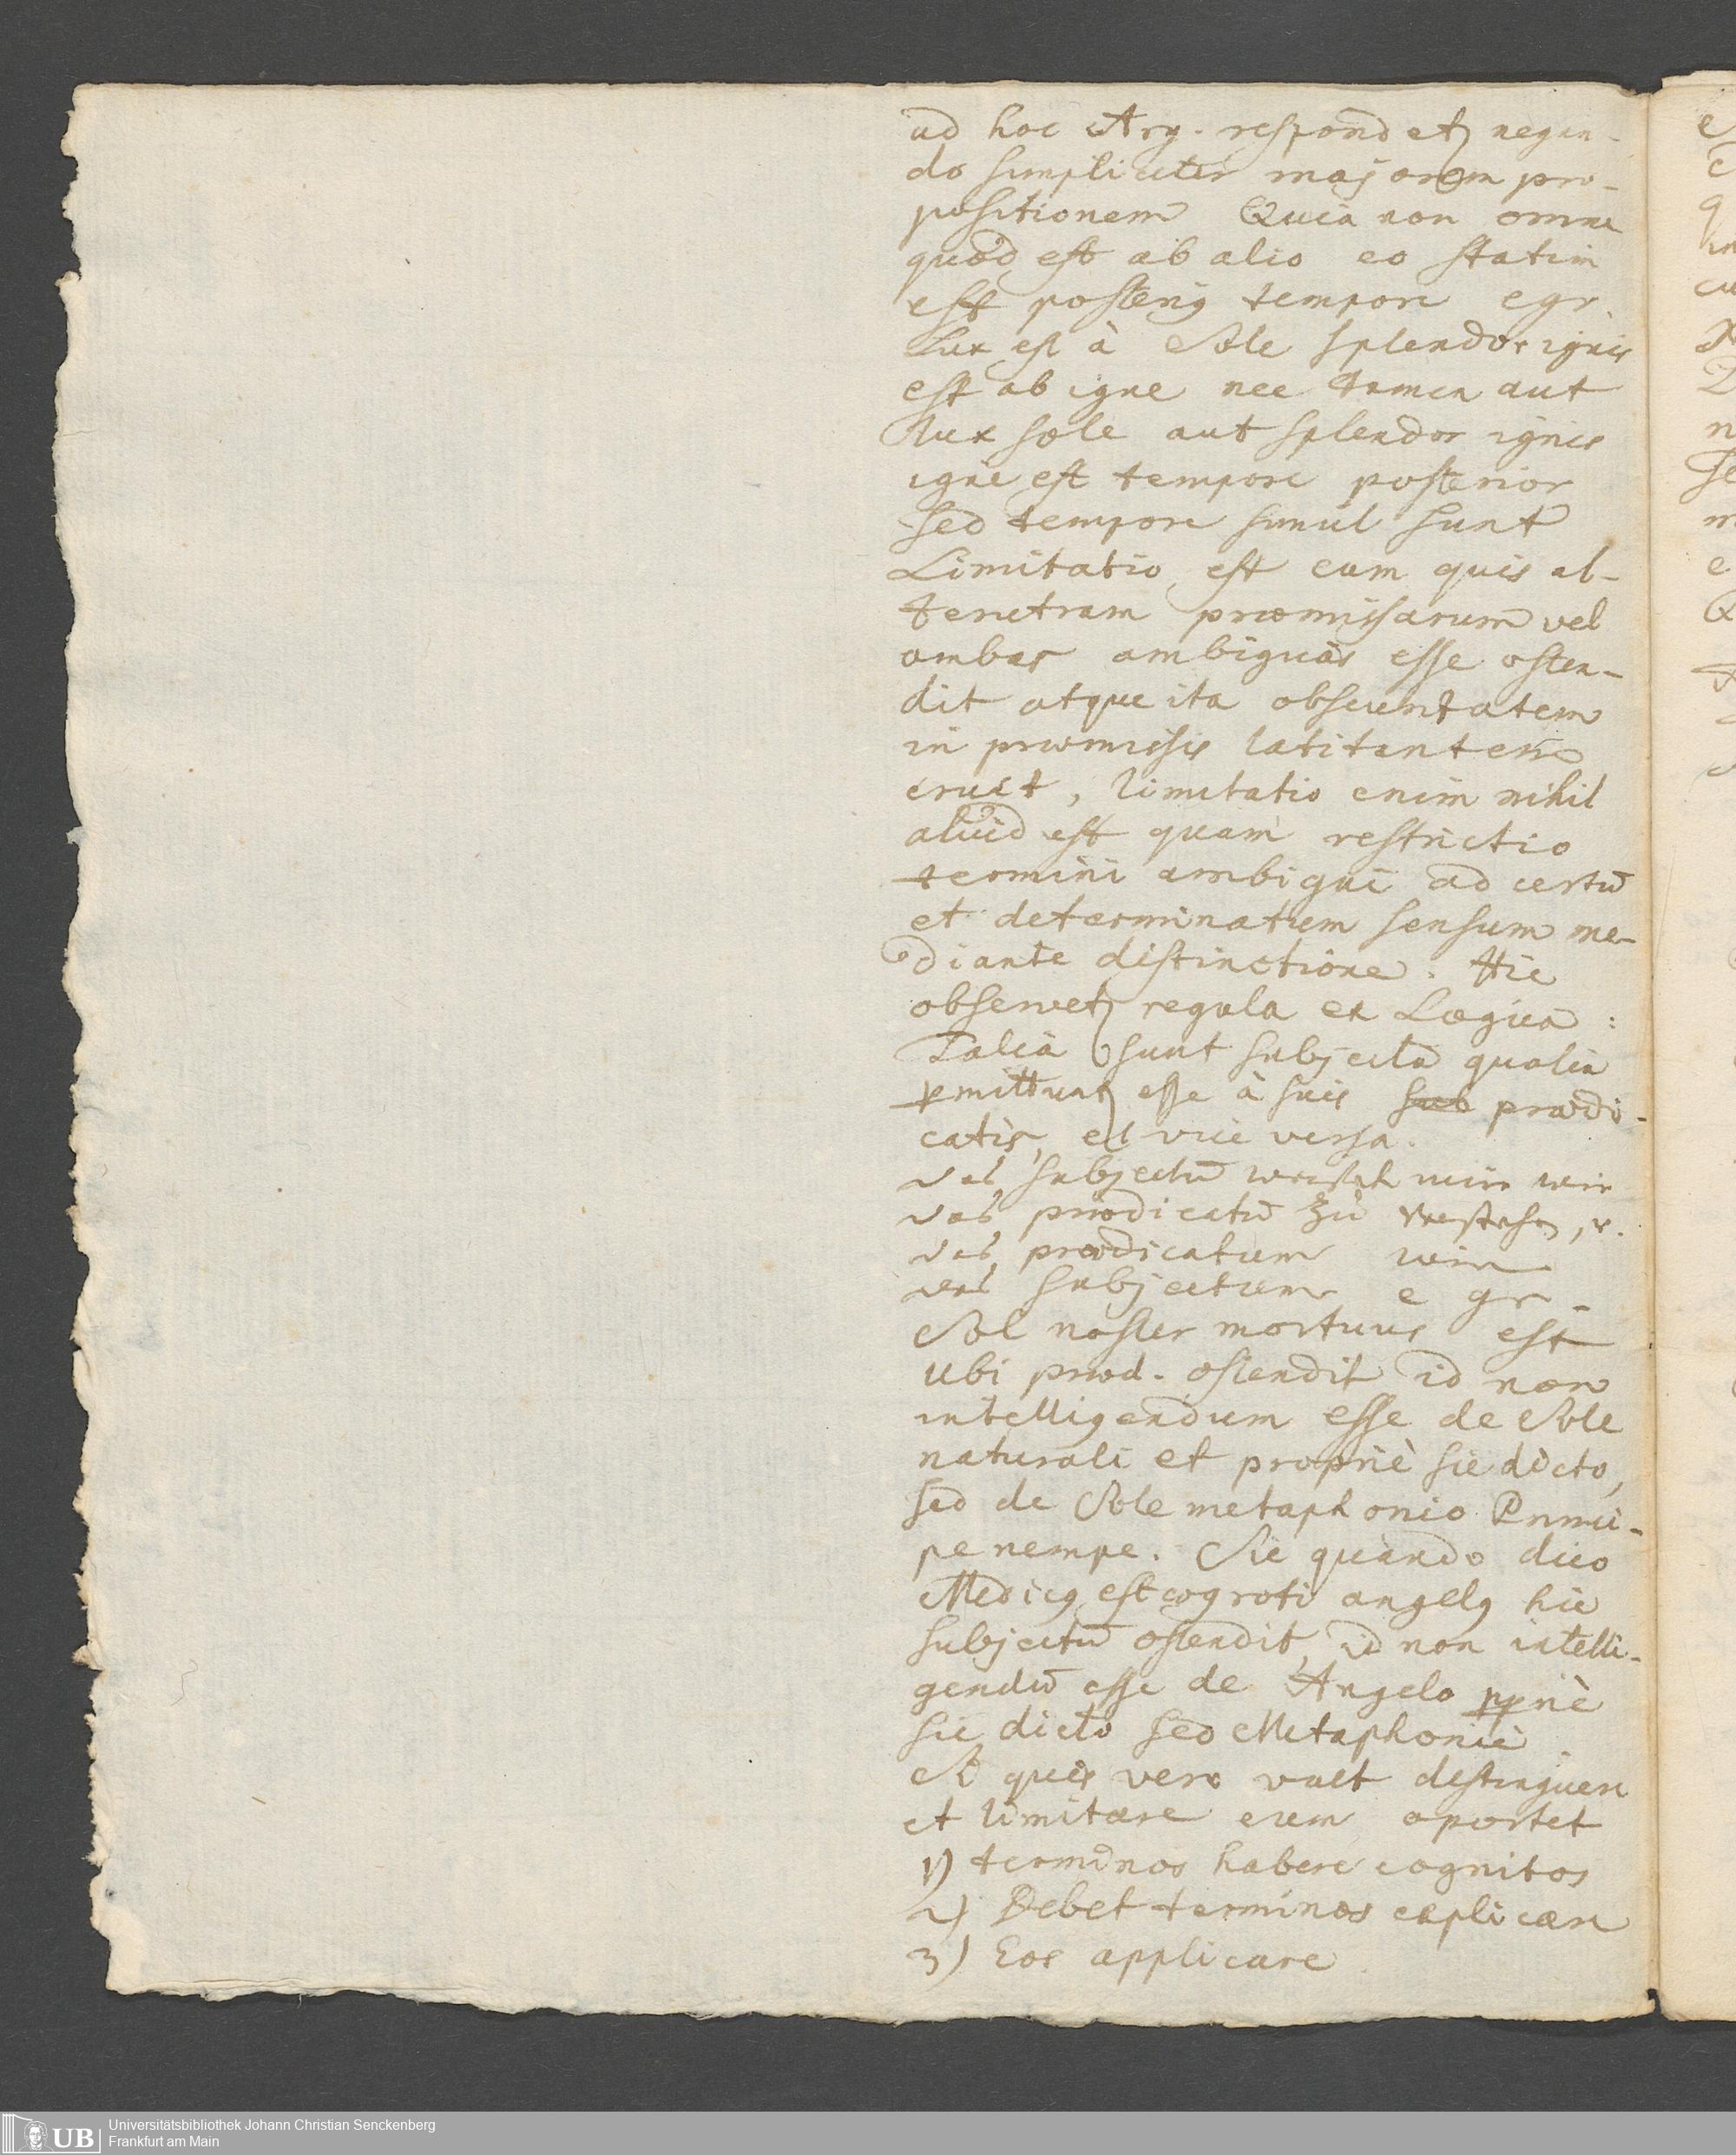 ad hoc Arg. respondetꝫ negan-
do simpliciter majorem pro-
positionem Quia non omne
quod est ab alio eo statim
est posteriꝰ tempore e gr.
Lux est à Sole splendor ignis
est ab igne nec tamen aut
lux sole aut splendor ignis
igne est tempore posterior
sed tempore simul sunt
Limitatio est cum quis al-
terutram præmissarum vel
ambas ambiguas esse osten-
dit atque ita obscuritatem
in præmissis latitantem
eruit, limitatio enim nihil
aliud est quam restrictio
termini ambigui ad certū
et determinatum sensum me-
diante distinctione. Hic
observetꝫ regula ex Logica:
Talia sunt subjecta qualia
ꝑmittuntꝫ esse à suis sub prædi-
catis, et vice versa.
das subjectū
das prædicatū zu verstehen, v.
das prædicatum wie
das subjectum e gr.
Sol noster mortuus est
ubi præd. ostendit id non
intelligendum esse de Sole
naturali et propriè sic dicto,
sed de Sole metaphorico Princi-
pe nempe. Sic quando dico
Medicꝰ est ægroti angelꝰ hic
subjectū ostendit, id non intelli-
gendū esse de Angelo ꝓpriè
sic dicto sed Metaphoricè
Si quis vero vult distinguere
et limitare eum oportet
1) terminos habere cognitos
2) Debet terminos explicare
3) Eos applicare
UB Universitätsbibliothek Johann Christian Senckenberg
Frankfurt am Main